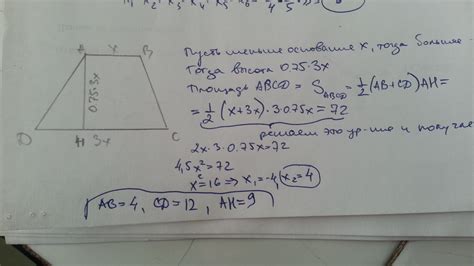 A x B
0.75·3x
D H 3x C
Пусть меньшее основание x, тогда большее -
Тогда высота 0.75·3x
Площадь ABCD = S ABCD = 1/2 (AB+CD) AH =
= 1/2 (x+3x)·3·0.75x = 72
решаем это ур-ние и получае
2x·3·0.75x=72
4,5x²=72
x²=16 => x₁=-4, x₂=4
AB=4, CD=12, AH=9